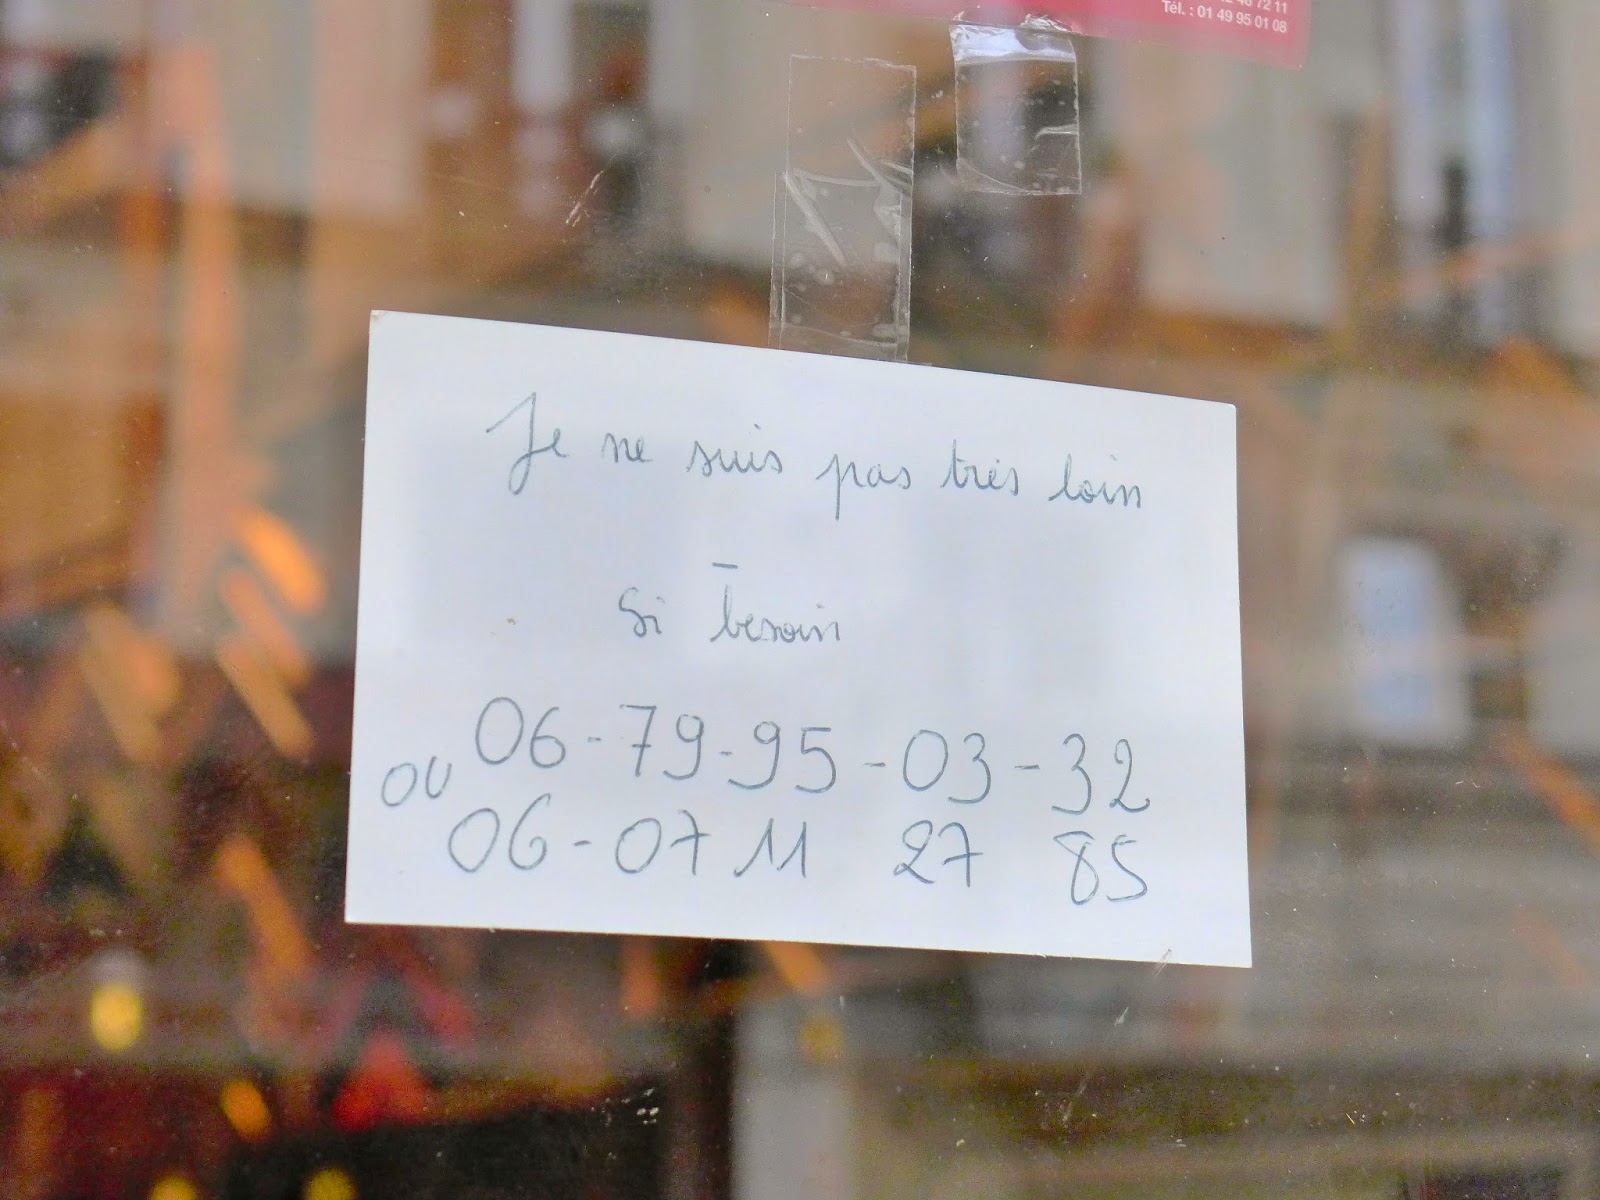 Tél. : 01 49 95 01 08
Je ne suis pas très loin
Si besoin
06-79-95-03-32
ou
06-07 11 27 85